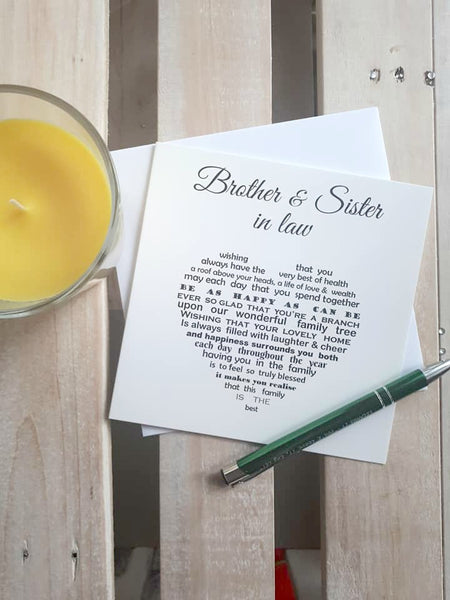 Brother & Sister
in law
wishing that you
always have the very best of health
a roof above your heads, a life of love & wealth
may each day that you spend together
BE AS HAPPY AS CAN BE
EVER SO GLAD THAT YOU'RE A BRANCH
upon our wonderful family tree
WISHING THAT YOUR LOVELY HOME
Is always filled with laughter & cheer
and happiness surrounds you both
each day throughout the year
having you in the family
is to feel so truly blessed
it makes you realise
that this family
IS THE
best